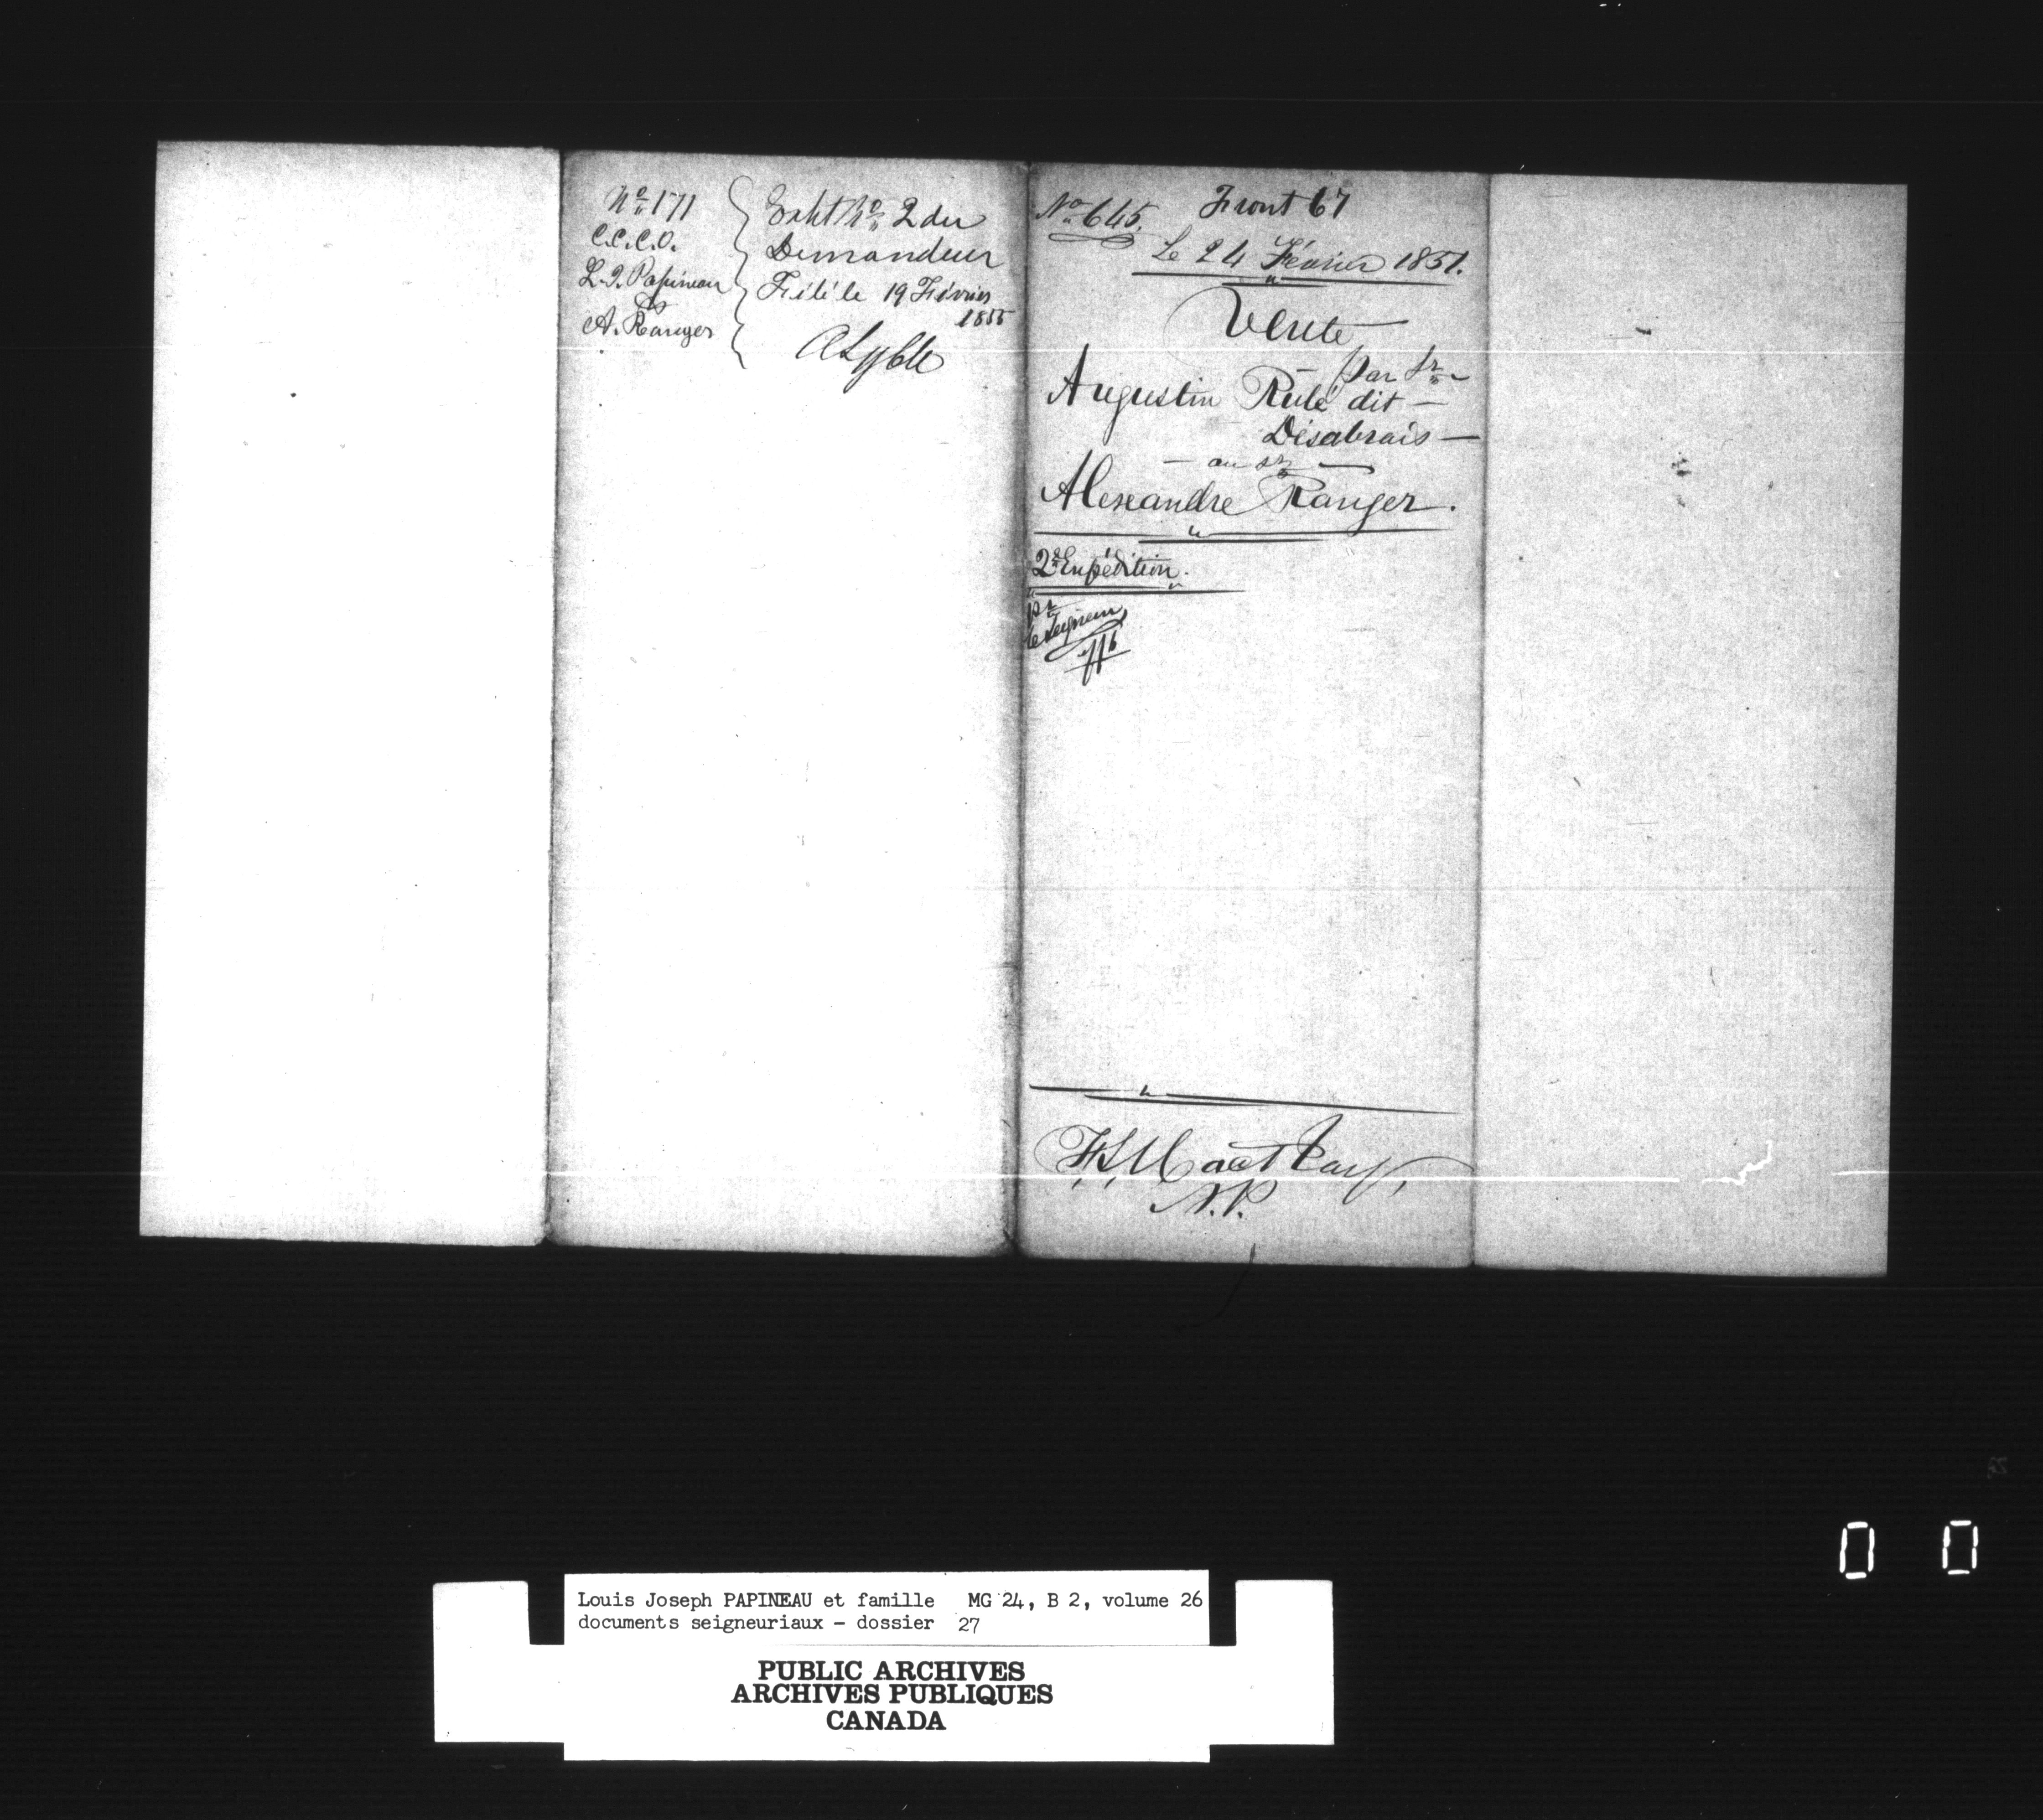 No 171
C.C.C.O.
L. J. Papineau
vs
A. Ranger
Exht No 2 du
Demandeur
Filé le 19 Février
1855
No 645.
Front 67
Le 24 Février 1851.
Vente
par Sr
Augustin Rubé dit
Désabrais
au Sr
Alexandre Ranger.
2de Expédition.
pr
le Seigneur
N.P.
Louis Joseph PAPINEAU et famille MG 24, B 2, volume 26
documents seigneuriaux - dossier 27
PUBLIC ARCHIVES
ARCHIVES PUBLIQUES
CANADA
0 0